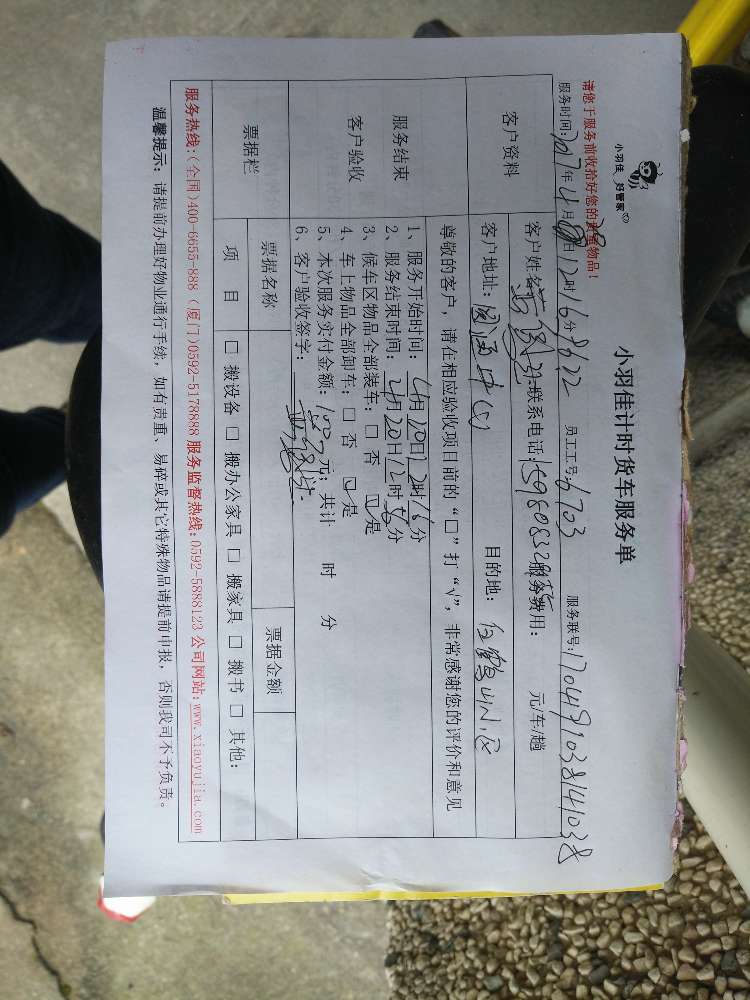 小羽佳 好管家
小羽佳计时货车服务单
请您于服务前收拾好您的贵重物品！
服务时间：2017年4月20日12时16分 员工工号：6703 服务联号：1704191038141038
客户资料
客户姓名： 联系电话： 服务费用： 元/车/趟
客户地址： 目的地：
服务结束
客户验收
尊敬的客户，请在相应验收项目前的“□”打“√”，非常感谢您的评价和意见
1、服务开始时间：4月20日12时16分
2、服务结束时间：4月20日12时56分
3、候车区物品全部装车：□ 否 ☑是
4、车上物品全部卸车：□ 否 ☑是
5、本次服务实付金额： 元；共计 时 分
6、客户验收签字：
票据栏
票据名称 票据金额
项 目 □ 搬设备 □ 搬办公家具 □ 搬家具 □ 搬书 □ 其他：
服务热线：(全国)400-6655-888 (厦门)0592-5178888 服务监督热线：0592-5888123 公司网站：www.xiaoyujia.com
温馨提示：请提前办理好物业通行手续，如有贵重、易碎或其它特殊物品请提前申报，否则我司不予负责。